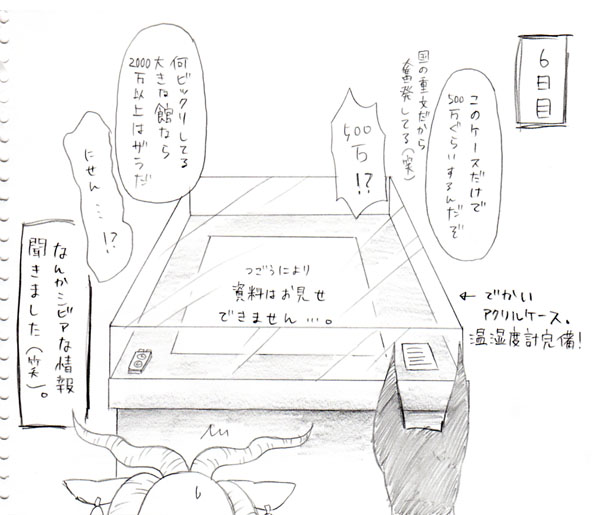 6日目
このケースだけで
500万ぐらいするんだぞ
国の重文だから
奮発してる(笑)
500
万!?
何ビックリしてる
大きな館なら
2000
万以上はザラだ
にせん…!?
つごうにより
資料はお見せ
できません…。
←でかい
アクリルケース。
温湿度計完備!
なんかシビアな情報
聞きました(笑)。